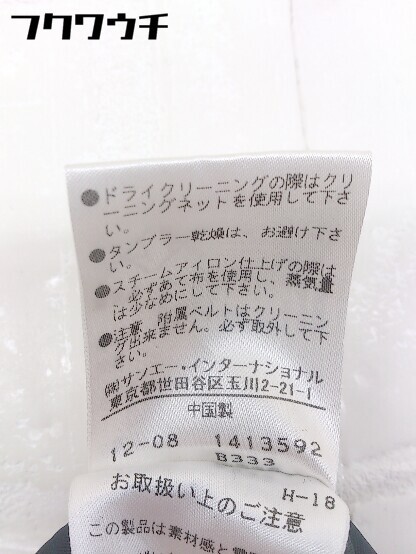 フクワウチ
●ドライクリーニングの際はクリ
ーニングネットを使用して下さ
い。
●タンブラー乾燥は、お避け下さ
い。
●スチームアイロン仕上げの際は
必ずあて布を使用し、蒸気量
は少なめにして下さい。
●注意 附属ベルトはクリーニン
グ出来ません。必ず取外して下
さい。
㈱サンエー・インターナショナル
東京都世田谷区玉川2-21-1
中国製
12-08 1413592
B333
お取扱い上のご注意 H-18
この製品は素材感と